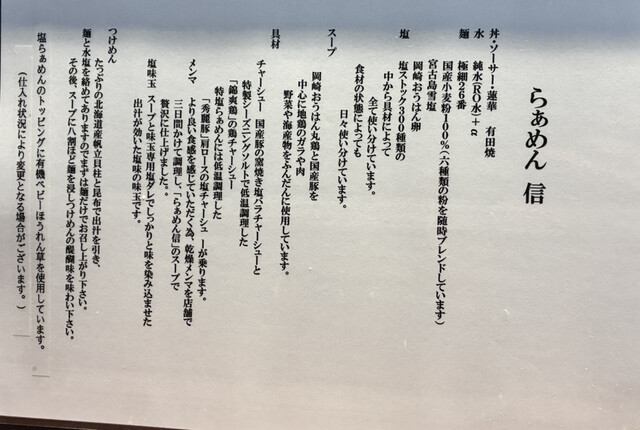 らぁめん 信
丼・ソーサー・蓮華 有田焼
水 純水(RO水)+α
麺 極細26番
国産小麦粉100%(六種類の粉を随時ブレンドしています)
宮古島雪塩
岡崎おうはん卵
塩 塩ストック300種類の
中から具材によって
全て使い分けています。
食材の状態によっても
日々使い分けています。
スープ
岡崎おうはん丸鶏と国産豚を
中心に地鶏のガラや肉
野菜や海産物をふんだんに使用しています。
具材
チャーシュー 国産豚の窯焼き塩バラチャーシューと
特製シーズニングソルトで低温調理した
「錦爽鶏」の鶏チャーシュー
特塩らぁめんには低温調理した
「秀麗豚」肩ロースの塩チャーシューが乗ります。
メンマ より良い食感を感じていただく為、乾燥メンマを店舗で
三日間かけて調理し、「らぁめん信」のスープで
贅沢に仕上げました。
塩味玉 スープと味玉専用塩ダレでしっかりと味を染み込ませた
出汁が効いた塩味の味玉です。
つけめん
たっぷりの北海道産帆立貝柱と昆布で出汁を引き、
麺と水塩を絡めてありますのでまずは麺だけでお召し上がり下さい。
その後、スープに八割ほど麺を浸しつけめんの醍醐味を味わい下さい。
塩らぁめんのトッピングに有機ベビーほうれん草を使用しています。
(仕入れ状況により変更となる場合がございます。)